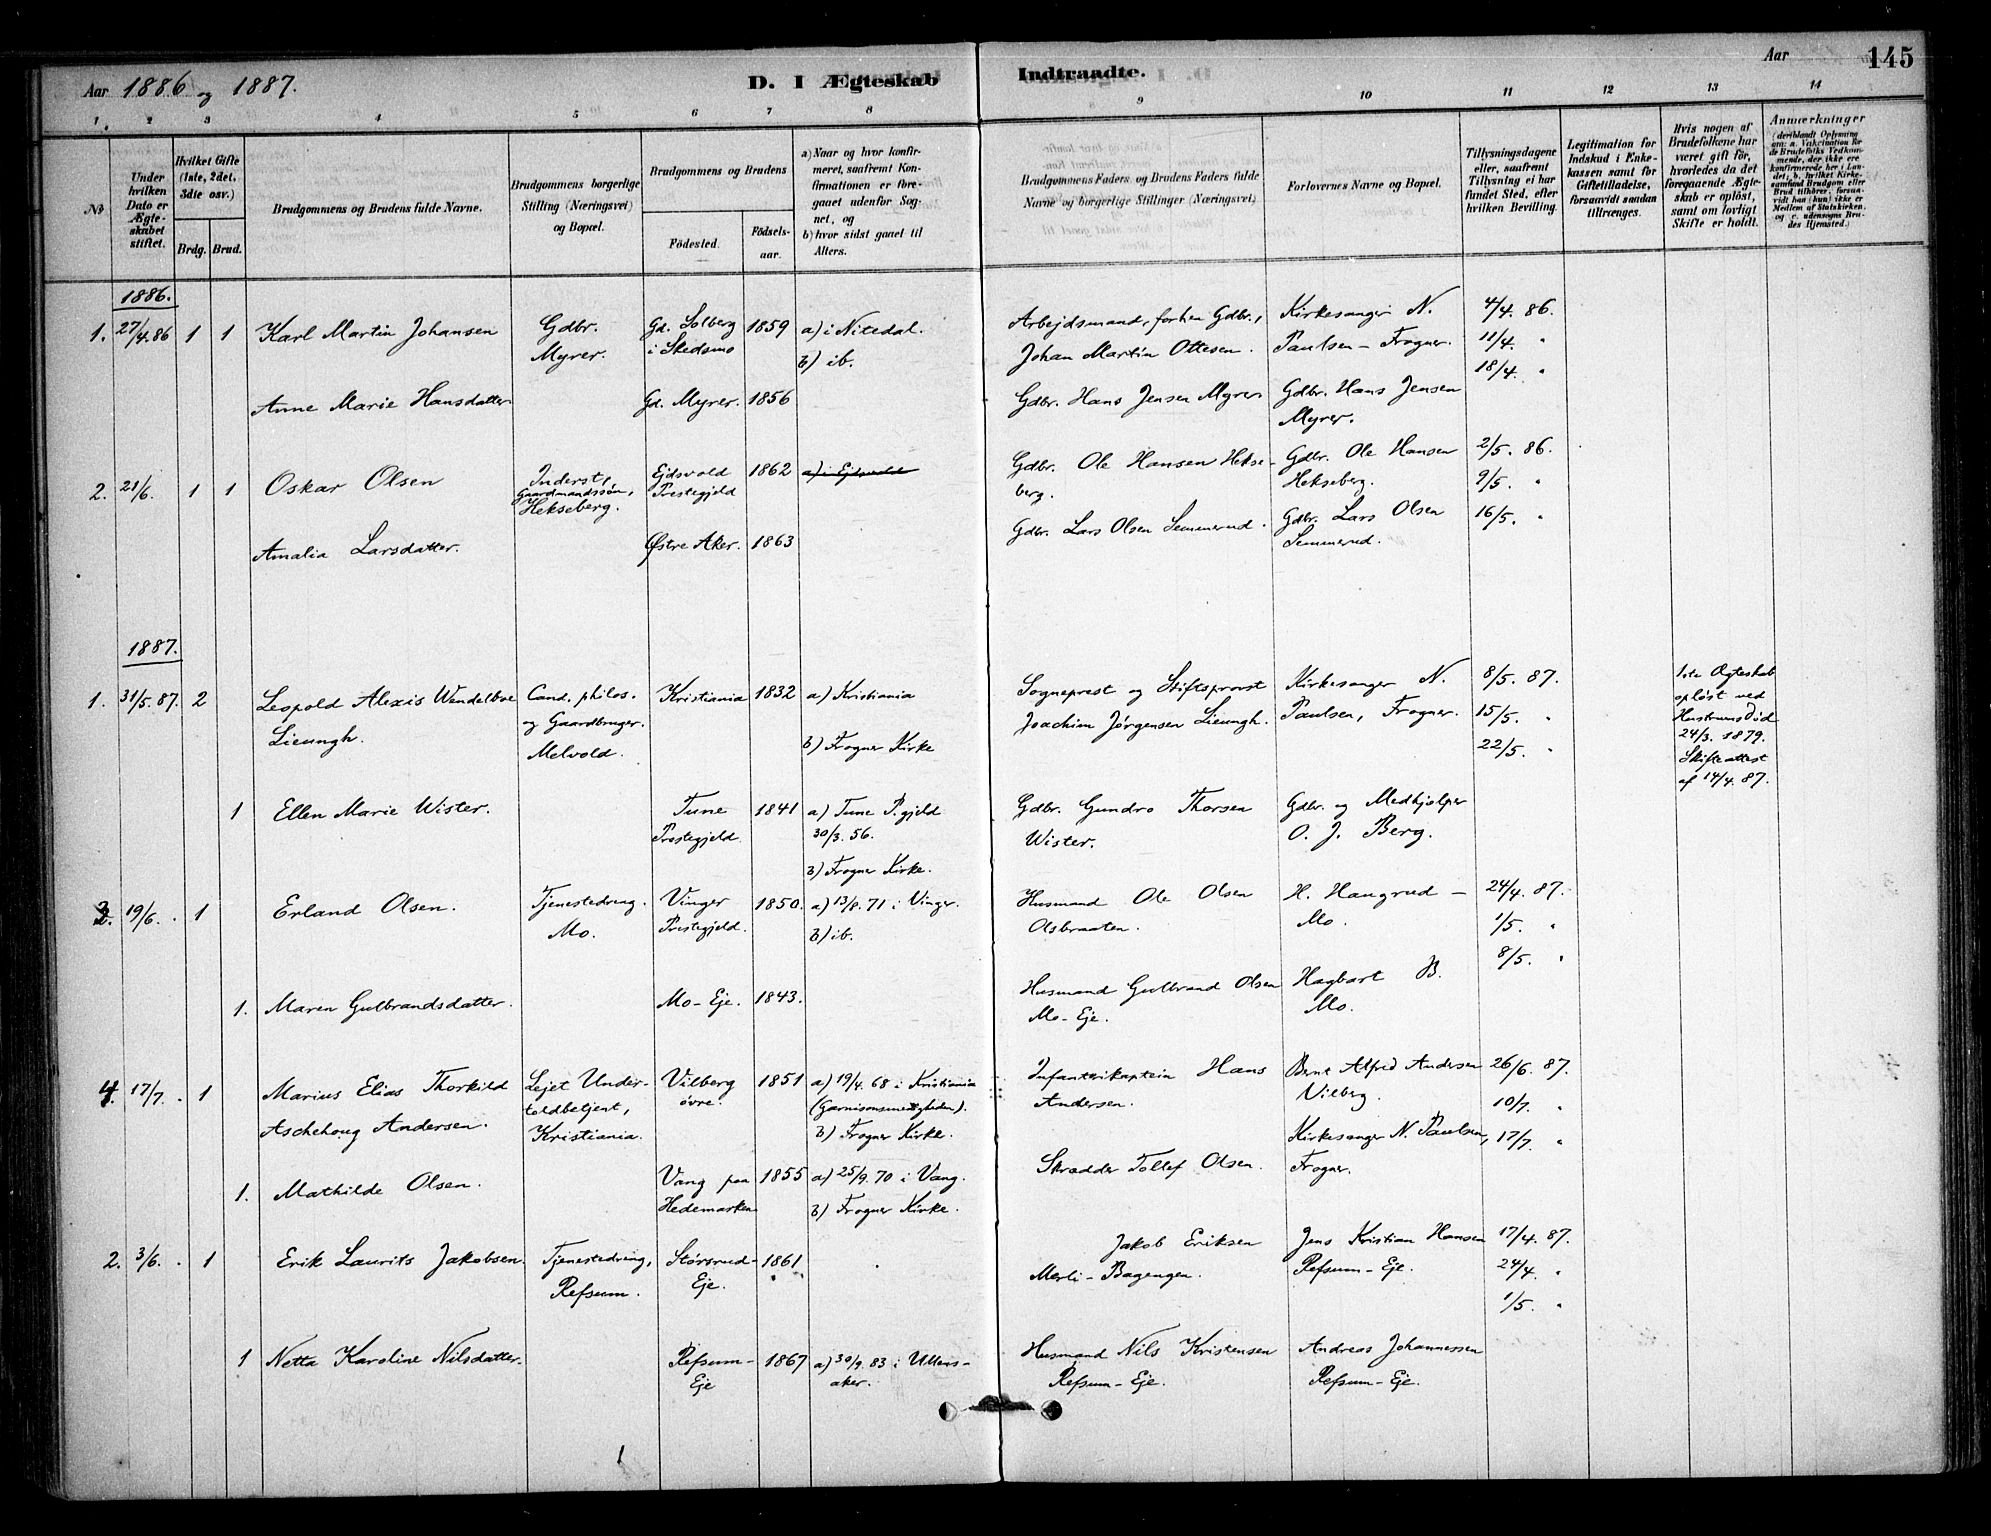 Aar 1886 og 1887.
D. I Ægteskab Indtraadte.
Aar
145
1. 2 3 4 5 6 7 8 9 10 11 12 13 14
No
Under hvilken Dato er Ægte-skabet stiftet.
Hvilket Gifte (1ste, 2det, 3die osv.)
Brdg. Brud.
Brudgommens og Brudens fulde Navne.
Brudgommens borgerlige Stilling (Næringsvei) og Bopæl.
Brudgommens og Brudens
Födested.
Födsels-aar.
a) Naar og hvor konfir-
meret, saafremt Kon-
firmationen er fore-
gaaet udenfor Sog-
net, og
b) hvor sidst gaaet til
Alters.
Brudgommens Faders og Brudens Faders fulde
Navne og borgerlige Stillinger (Næringsvei)
Forlovernes Navne og Bopæl.
Tillysningsdagene
eller, saafremt
Tillysning ei har
fundet Sted, efter
hvilken Bevilling.
Legitimation for
Indskud i Enke-
kassen samt for
Giftetilladelse,
forsaavidt saadan
tiltrænges.
Hvis nogen af
Brudefolkene har
været gift för,
hvorledes da det
foregaaende Ægte-
skab er oplöst,
samt om lovligt
Skifte er holdt.
Anmærkninger
(deriblandt Oplysning
om: a. Vakcination for
Brudefolks Vedkom-
mende, der ikke ere
konfirmerede her i Lan-
det, b. hvilket Kirke-
samfund Brudgom eller
Brud tilhörer, forsaa-
vidt han (hun) ikke er
Medlem af Statskirken,
og c. udensogns Bru-
des Hjemsted.)
1886.
1. 27/4.86 1 1 Karl Martin Johansen
Gdbr.
Myrer.
Gd. Solberg
i Skedsmo
1859
a) i Nitedal.
b) ib.
Arbejdsmand, forhen Gdbr.,
Johan Martin Ottesen.
Kirkesanger N.
Paulsen – Frogner.
4/4. 86.
11/4. "
18/4. "
Anne Marie Hansdatter
Gd. Myrer. 1856
Gdbr. Hans Jensen Myrer
Gdbr. Hans Jensen
Myrer.
2. 21/6. 1 1 Oskar Olsen
Inderst,
Gaardmandssøn,
Hekseberg.
Ejdsvold
Prestegjeld
1862
a) i Ejdsvold
Gdbr. Ole Hansen Hekse-
berg.
Gdbr. Ole Hansen
Hekseberg.
2/5. 86
9/5. "
16/5. "
Amalia Larsdatter.
Østre Aker. 1863
Gdbr. Lars Olsen Semmerud.
Gdbr. Lars Olsen
Semmerud.
1887.
1. 31/5.87. 2 Leopold Alexis Wendelboe
Lieungh.
Cand. philos.
og Gaardbruger.
Melvold.
Kristiania 1832
a) Kristiania
b) Frogner Kirke
Sogneprest og Stiftsprovst
Joachim Jørgensen Lieungh.
Kirkesanger N.
Paulsen, Frogner.
8/5. 87.
15/5. "
22/5. "
1ste Ægteskab
opløst ved
Hustruens Død
24/3. 1879.
Skifteattest
af 14/4. 87.
1 Ellen Marie Wister.
Tune
Prestegjeld
1841
a) Tune P.gjeld
30/3. 56.
b) Frogner Kirke.
Gdbr. Gundro Thorsen
Wister.
Gdbr. og Medhjelper
O. J. Berg.
3. 19/6. 1 Erland Olsen.
Tjenestedreng.
Mo.
Vinger
Prestegjeld.
1850.
a) 13/8. 71 i Vinger.
b) ib.
Husmand Ole Olsen
Olsbraaten.
H. Haugrud –
Mo.
24/4. 87.
1/5. "
8/5. "
1. Maren Gulbrandsdatter.
Mo-Eje. 1843.
Husmand Gulbrand Olsen
Mo-Eje.
Hagbart B.
Mo.
4. 17/7. 1 Marius Elias Thorkild
Aschehoug Andersen.
Lejet Under-
toldbetjent,
Kristiania.
Vilberg
øvre.
1851
a) 19/4. 68 i Kristiania
(Garnisonsmenigheden).
b) Frogner Kirke.
Infanterikaptein Hans
Andersen.
Bernt Alfred Andersen
Vilberg.
26/6. 87.
10/7. "
17/7. "
1. Mathilde Olsen.
Vang paa
Hedemarken
1855
a) 25/9. 70 i Vang.
b) Frogner Kirke.
Skrædder Tollef Olsen.
Kirkesanger N. Paulsen,
Frogner.
2. 3/6. 1 Erik Laurits Jakobsen.
Tjenestedreng,
Refsum.
Størsrud-
Eje.
1861
Jakob Eriksen
Merli-Bagengen.
Jens Kristian Hansen
Refsum-Eje.
17/4. 87.
24/4. "
1/5. "
1 Netta Karoline Nilsdatter.
Refsum-
Eje
1867
a) 30/9. 83 i Ullens-
aker.
Husmand Nils Kristensen
Refsum-Eje.
Andreas Johannessen
Refsum-Eje.